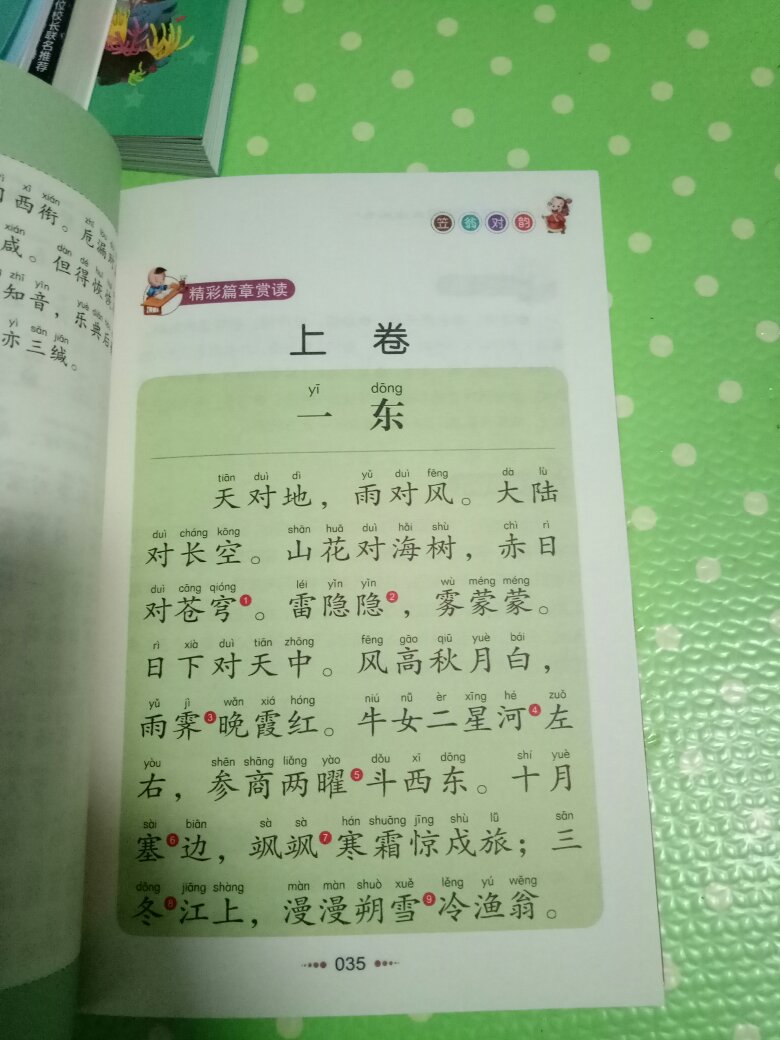 位校长联名推荐
西衔。卮漏
咸。但得恢
知音，乐典后
亦三缄。
笠翁对韵
精彩篇章赏读
上 卷
yī dōng
一 东
tiān duì dì yǔ duì fēng dà lù
天对地，雨对风。大陆
duì cháng kōng shān huā duì hǎi shù chì rì
对长空。山花对海树，赤日
duì cāng qióng léi yǐn yǐn wù méng méng
对苍穹1。雷隐隐2，雾蒙蒙。
rì xià duì tiān zhōng fēng gāo qiū yuè bái
日下对天中。风高秋月白，
yǔ jì wǎn xiá hóng niú nǚ èr xīng hé zuǒ
雨霁3晚霞红。牛女二星河4左
yòu shēn shāng liǎng yào dǒu xī dōng shí yuè
右，参商两曜5斗西东。十月
sài biān sà sà hán shuāng jīng shù lǚ sān
塞6边，飒飒7寒霜惊戍旅；三
dōng jiāng shàng màn màn shuò xuě lěng yú wēng
冬8江上，漫漫朔雪9冷渔翁。
035